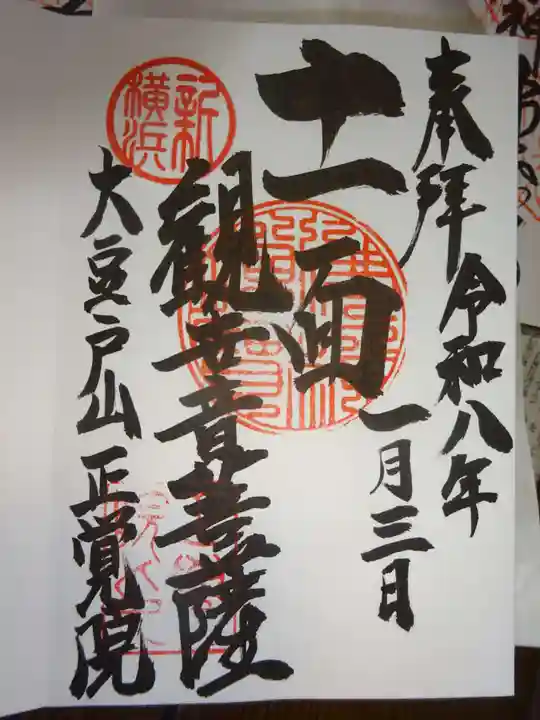 奉拝
令和八年
一月三日
十一面
観世音菩薩
新横浜
大豆戸山 正覚院